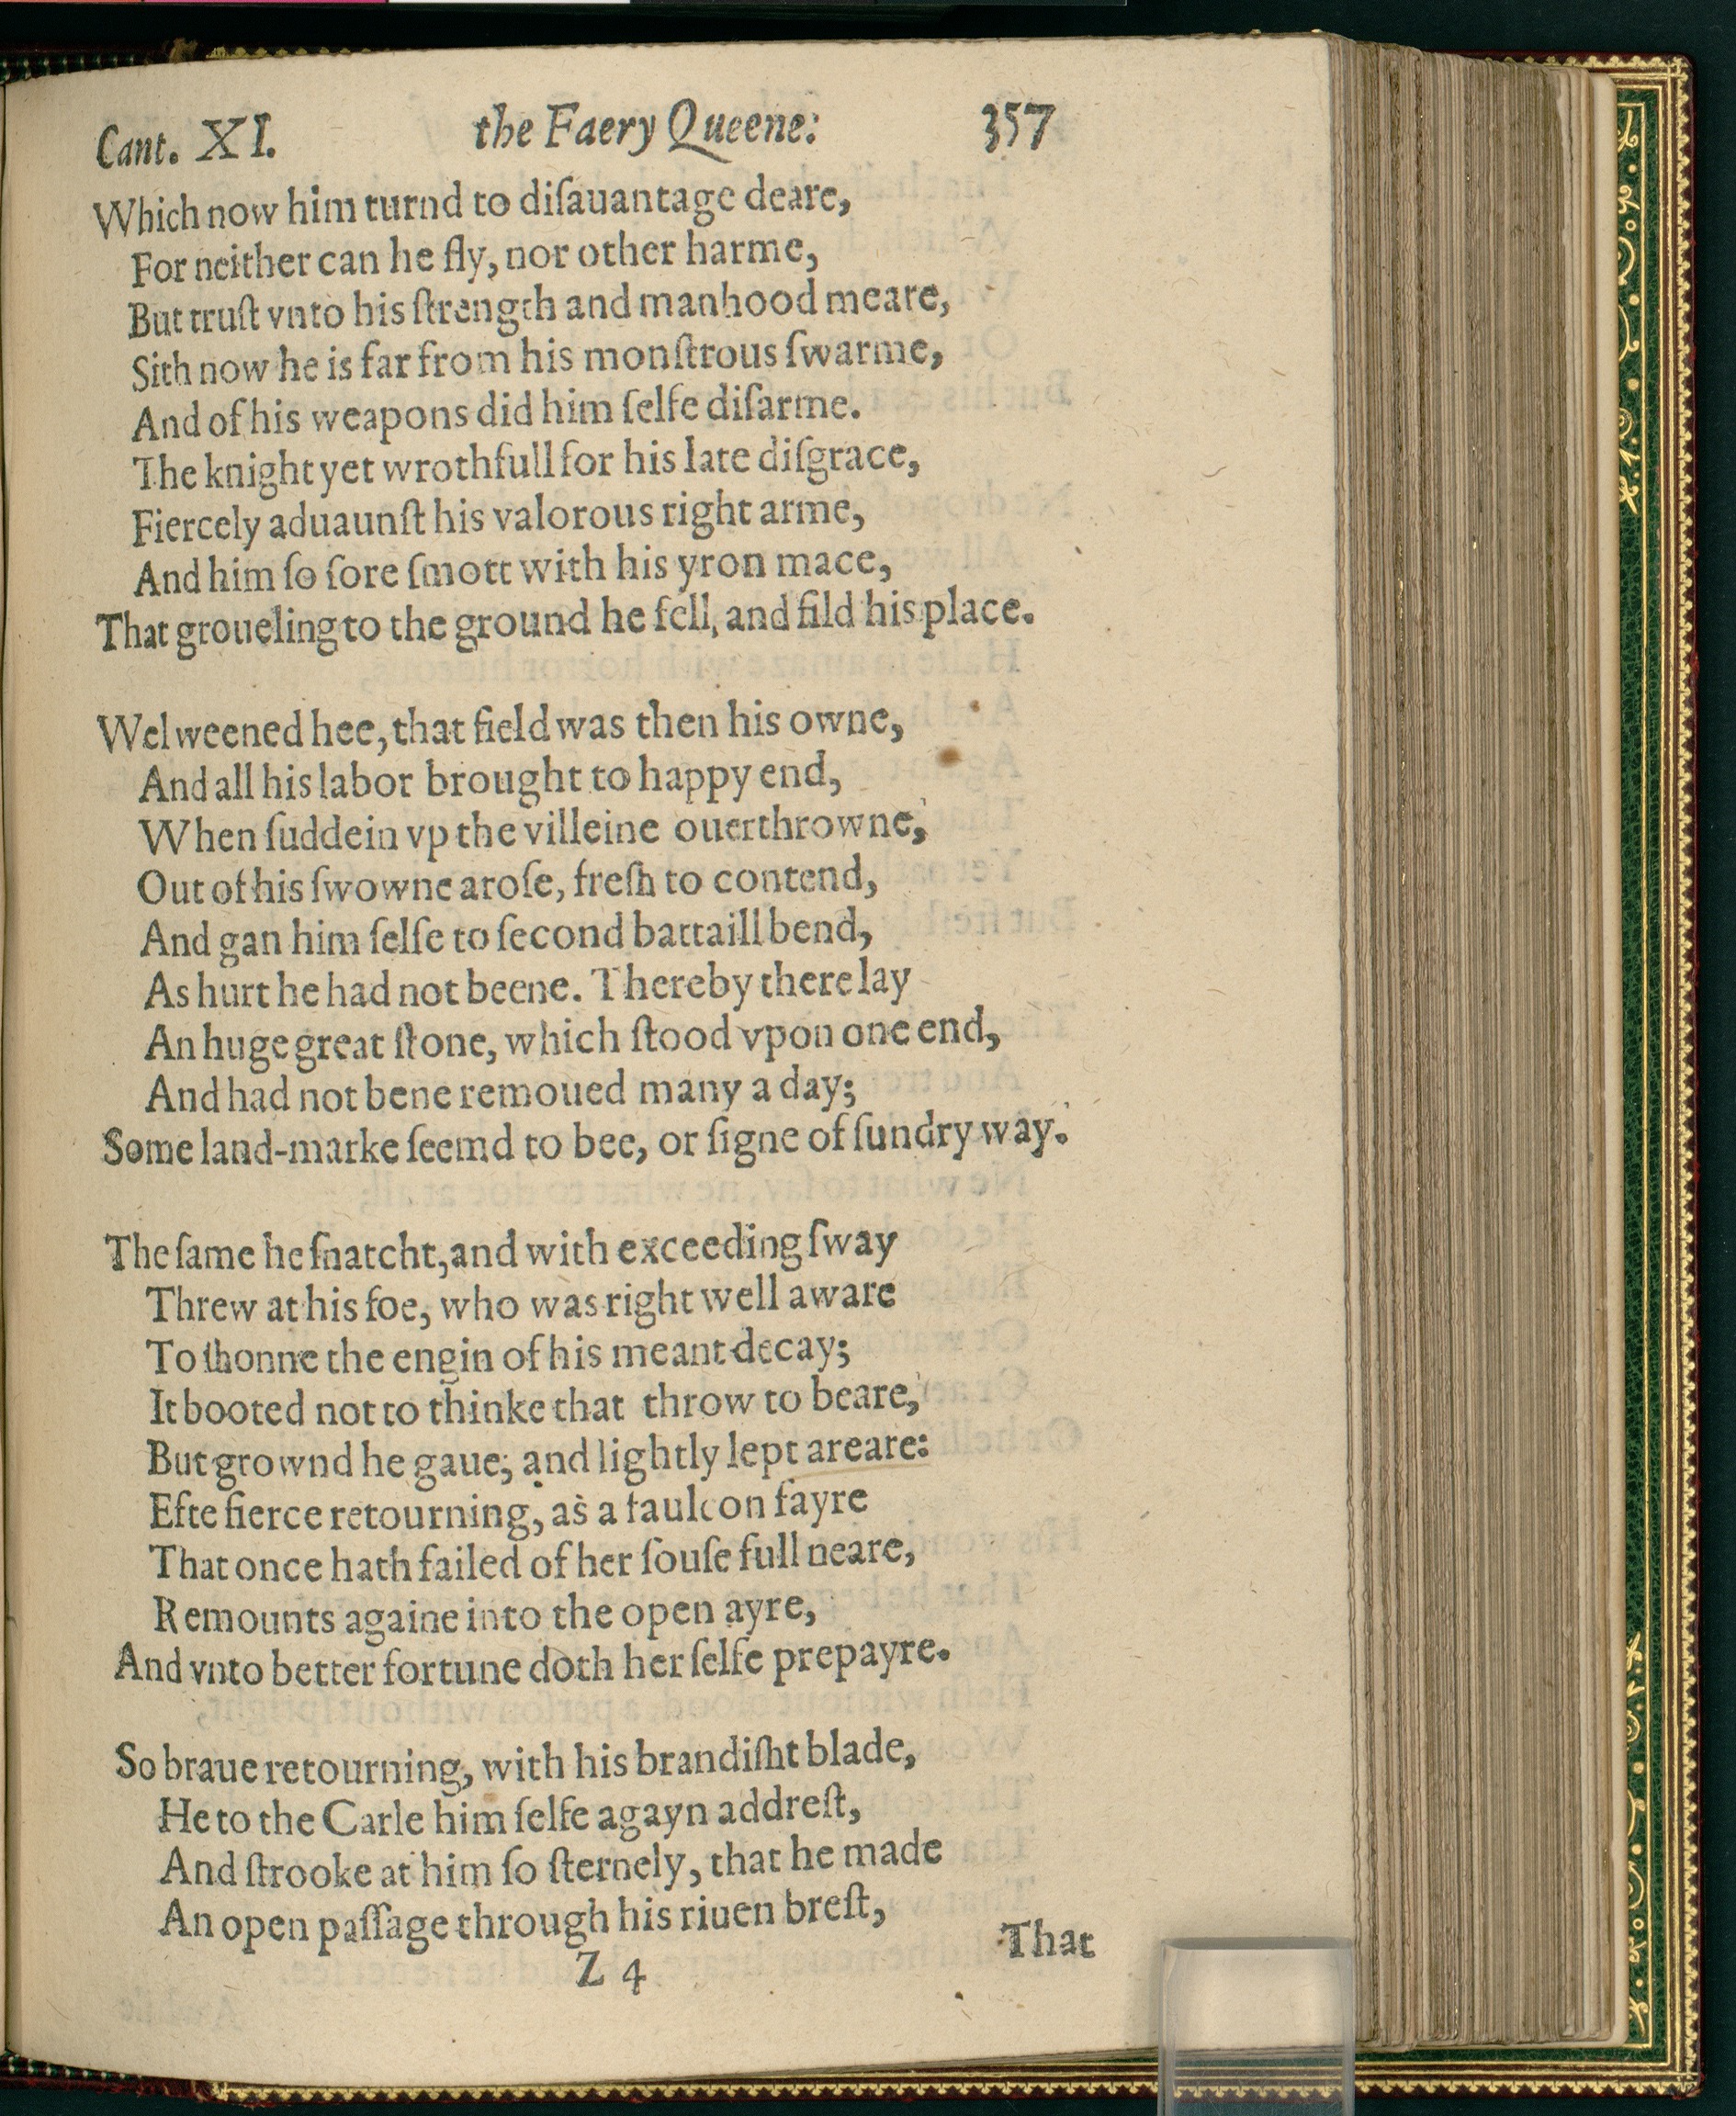 Cant. XI. the Faery Queene: 357
Which now him turnd to diſauantage deare,
For neither can he fly, nor other harme,
But truſt vnto his ſtrength and manhood meare,
Sith now he is far from his monſtrous ſwarme,
And of his weapons did him ſelfe diſarme.
The knight yet wrothfull for his late diſgrace,
Fiercely aduaunſt his valorous right arme,
And him ſo ſore ſmott with his yron mace,
That groueling to the ground he fell, and fild his place.
Wel weened hee, that field was then his owne,
And all his labor brought to happy end,
When ſuddein vp the villeine ouerthrowne,
Out of his ſwowne aroſe, freſh to contend,
And gan him ſelfe to ſecond battaill bend,
As hurt he had not beene. Thereby there lay
An huge great ſtone, which ſtood vpon one end,
And had not bene remoued many a day;
Some land-marke ſeemd to bee, or ſigne of ſundry way.
The ſame he ſnatcht, and with exceeding ſway
Threw at his foe, who was right well aware
To ſhonne the engin of his meant decay;
It booted not to thinke that throw to beare,
But grownd he gaue, and lightly lept areare:
Efte fierce retourning, as a faulcon fayre
That once hath failed of her ſouſe full neare,
Remounts againe into the open ayre,
And vnto better fortune doth her ſelfe prepayre.
So braue retourning, with his brandiſht blade,
He to the Carle him ſelfe agayn addreſt,
And ſtrooke at him ſo ſternely, that he made
An open paſſage through his riuen breſt,
That
Z 4